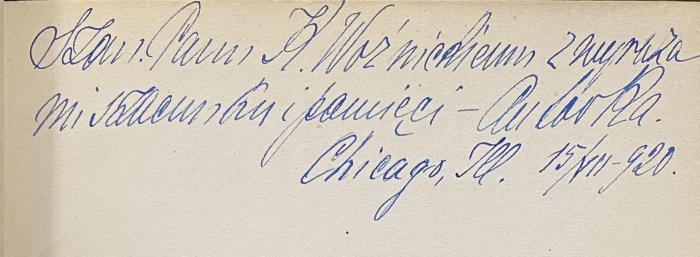 Szan. Panu K. Woźnickiemu z wyraza
mi szacunku i pamięci – Autorka.
Chicago, Ill. 15/VII–920.